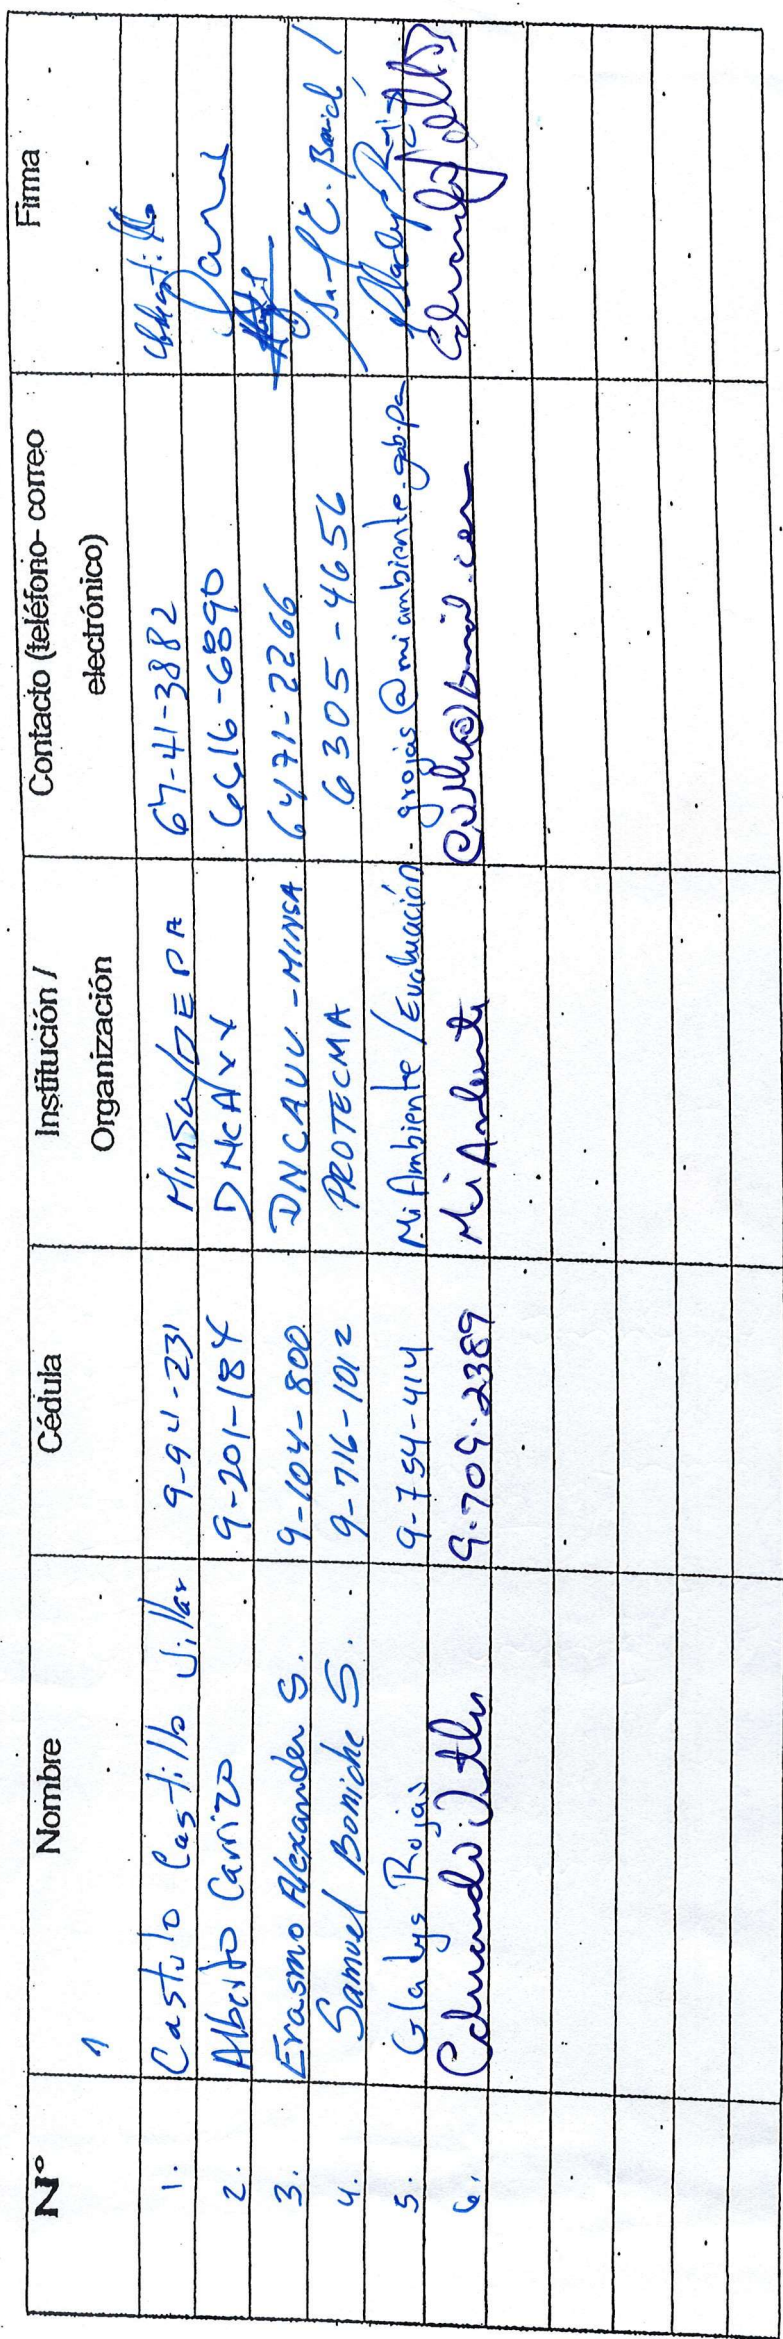 N° Nombre Cédula Institución / Organización Contacto (teléfono- correo electrónico) Firma
1. Castulo Castillo Villar 9-94-231 Minsa/DEPA 67-41-3882
2. Alberto Carrizo 9-201-184 DNCAVV 6616-6890
3. Erasmo Alexander S. 9-104-800 DNCAVV-MINSA 6471-2266
4. Samuel Boniche S. 9-716-1012 PROTECMA 6305-4656
5. Gladys Rojas 9-754-414 MiAmbiente/Evaluación - grojas@miambiente.gob.pa
6. 9-709-2389 MiAmbiente